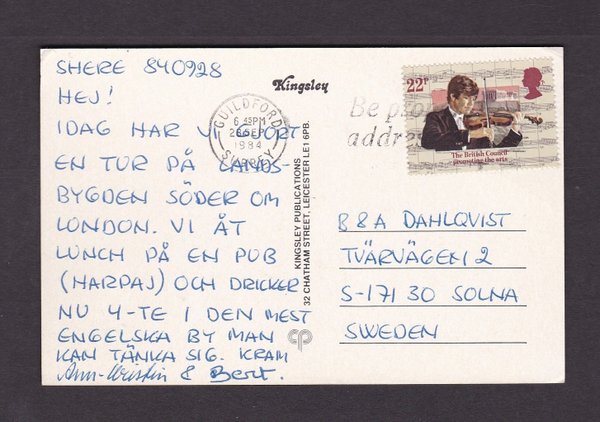 SHERE 840928
HEJ!
IDAG HAR VI GJORT
EN TUR PÅ LANDS-
BYGDEN SÖDER OM
LONDON. VI ÅT
LUNCH PÅ EN PUB
(HARPAJ) OCH DRICKER
NU 4-TE I DEN MEST
ENGELSKA BY MAN
KAN TÄNKA SIG. KRAM
Ann-Kristin & Bert.
Kingsley
GUILDFORD
6 45PM
28 SEP
1984
SURREY
Be pro
addre
22P
The British Council
promoting the arts
KINGSLEY PUBLICATIONS
32 CHATHAM STREET, LEICESTER LE1 6PB.
B & A DAHLQVIST
TVÄRVÄGEN 2
S-171 30 SOLNA
SWEDEN